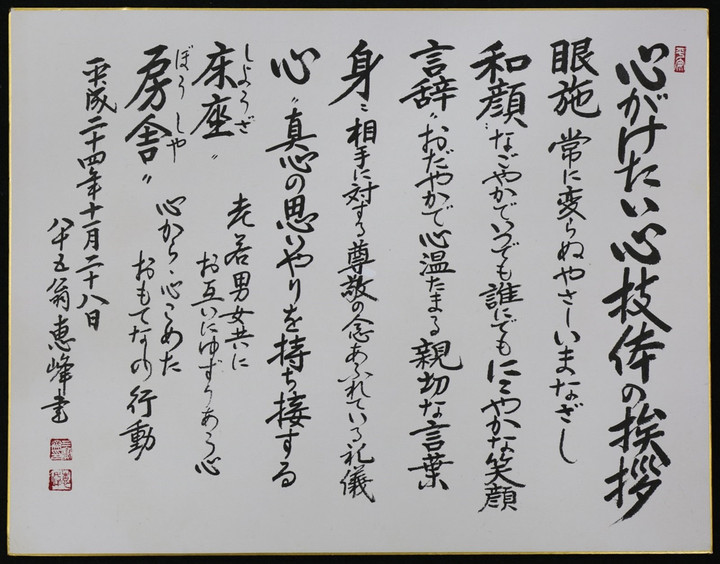 心がけたい心技体の挨拶
眼施 常に変らぬやさしいまなざし
和顔〃なごやかでいつでも誰にでもにこやかな笑顔
言辞〃おだやかで心温たまる親切な言葉
身〃相手に対する尊敬の念あふれている礼儀
心〃真心の思いやりを持ち接する
しようざ
床座〃 老若男女共に
お互いにゆずりあう心
ぼうしや
房舎〃 心から心こめた
おもてなしの行動
平成二十四年十一月二十八日
八十五翁恵峰書